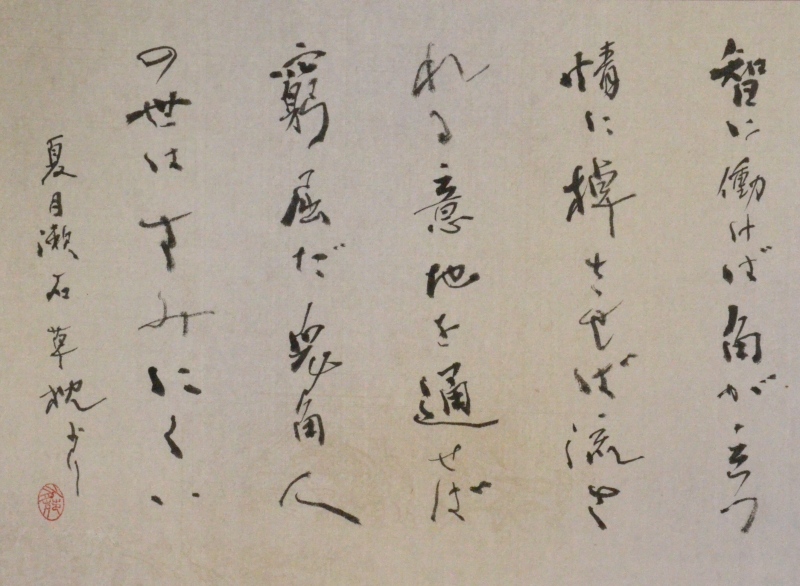 智に働けば角が立つ
情に棹させば流さ
れる意地を通せば
窮屈だ兎角人
の世はすみにくい
夏目漱石草枕より